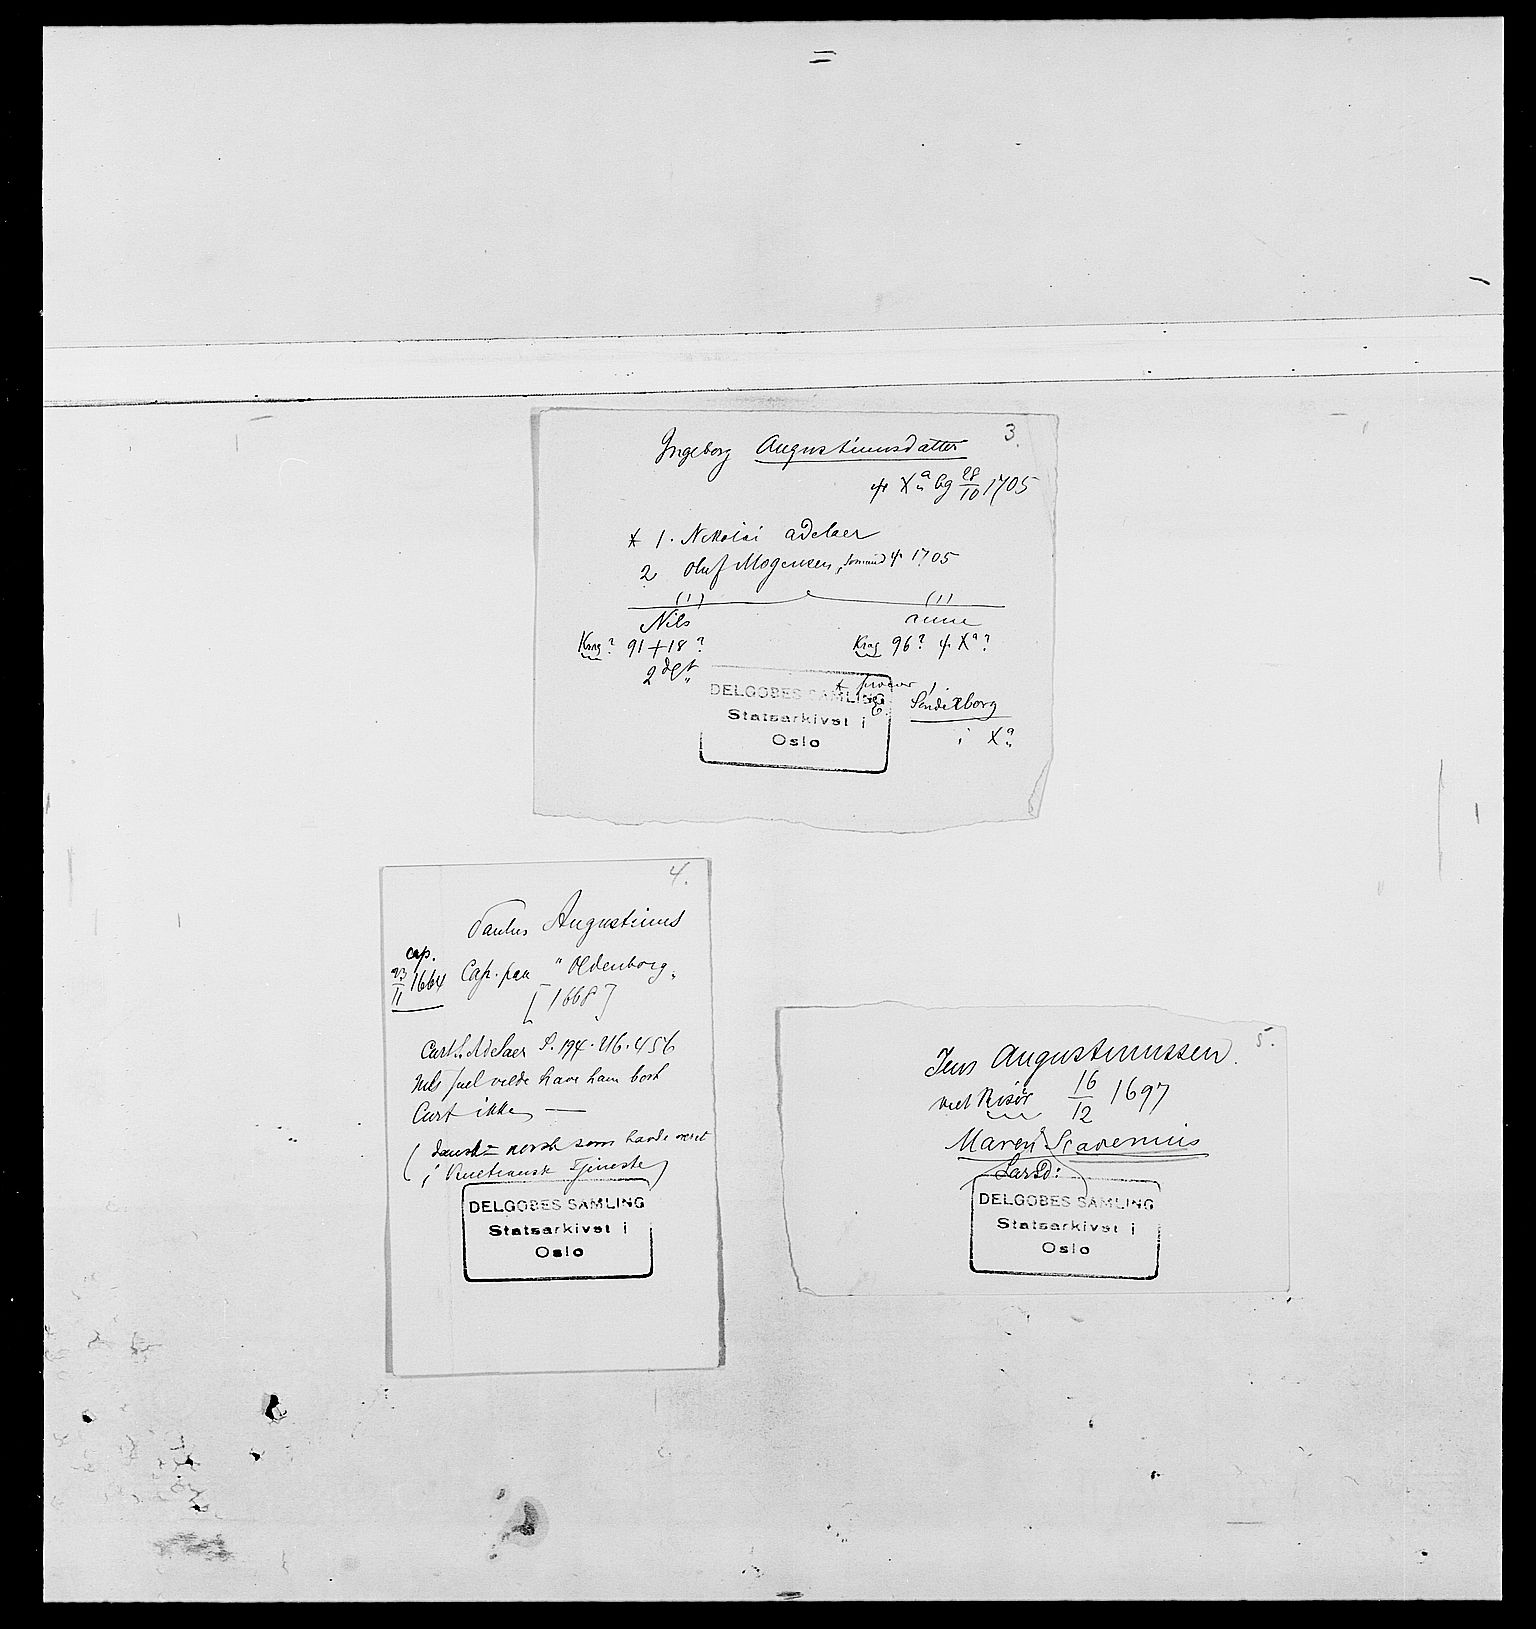 3.
Ingeborg Augustinusdatter
Xa bg 28/10 1705
1. Nikolai Adelaer
2 Oluf Mogensen, 1705
(1) (1)
Nils Anne
Krag? 91 + 18? Krag 96? Xa?
2 dgt
Sønderborg
i Xa
DELGOBES SAMLING
Statsarkivet i
Oslo
4.
Paulus Augustinus
cap.
23/11 1664 Cap. paa "Oldenborg"
[1668]
Curt S. Adelaer S. 194. 216. 456
Nils Juel vilde have ham bort
Curt ikke —
(dansk-norsk som havde været
i Venetiansk Tjeneste)
DELGOBES SAMLING
Statsarkivet i
Oslo
5.
Jens Augustinussen.
ved Risør 16/12 1697
Maren Scavenius
Larsd:
DELGOBES SAMLING
Statsarkivet i
Oslo